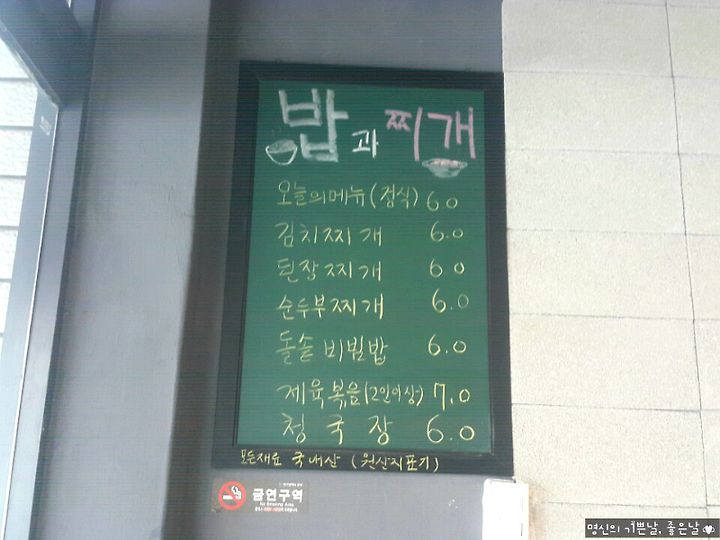 밥과 찌개
오늘의메뉴(정식) 6.0
김치찌개 6.0
된장찌개 6.0
순두부찌개 6.0
돌솥비빔밥 6.0
제육볶음(2인이상) 7.0
청국장 6.0
모든재료 국내산 (원산지표기)
금연구역
No Smoking Area
명신의 기쁜날, 좋은날